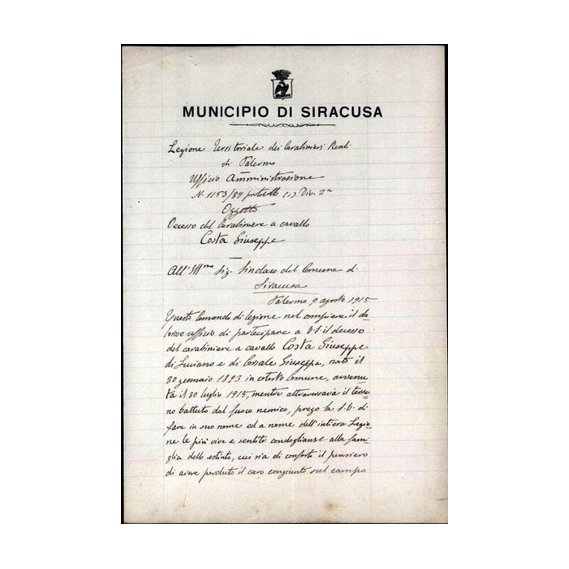 MUNICIPIO DI SIRACUSA
Legione Territoriale dei Carabinieri Reali
di Palermo
Ufficio Amministrazione
N. 1153/84 Div. 2ª
Oggetto
Decesso del Carabiniere a cavallo
Costa Giuseppe
All' Ill.mo Sig. Sindaco del Comune di
Siracusa
Palermo 9 agosto 1915
Questo Comando di legione nel compiere il do
loroso ufficio di partecipare a S.S. il decesso
del carabiniere a cavallo Costa Giuseppe
di Luciano e di Giuseppa, nato il
30 gennaio 1893 in cotesto Comune, avvenu
to il 20 luglio 1915, mentre attraversava il terre
no battuto dal fuoco nemico, prega la S.V. di
fare in suo nome ed a nome dell'intiera Legio
ne le più vive e sentite condoglianze alla fami
glia dello estinto, cui sia di conforto il pensiero
di avere perduto il caro congiunto sul campo